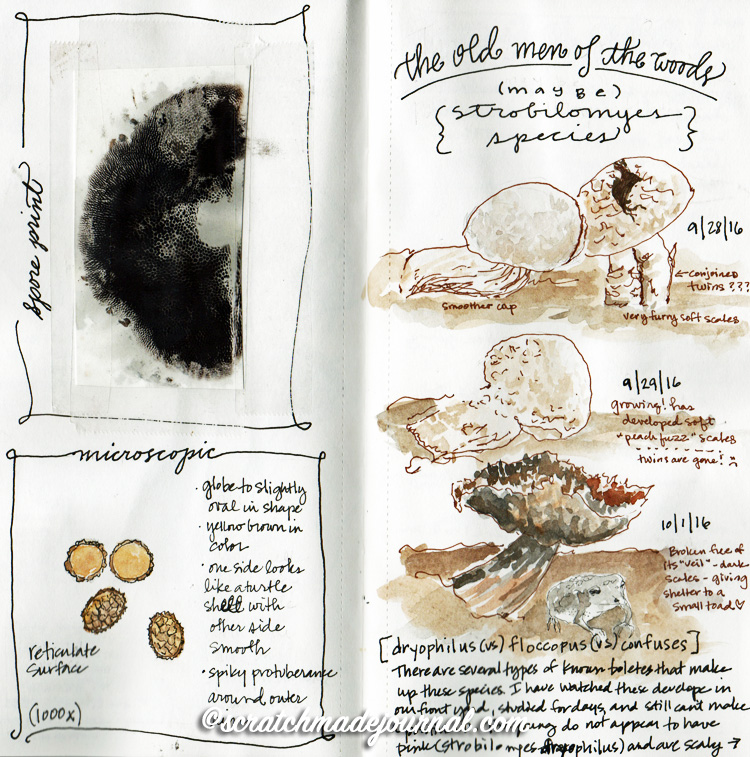 spore print
microscopic
· globe to slightly
oval in shape
· yellow brown in
color
· one side looks
like a turtle
shell with
other side
smooth
· spiky protuberance
around outer
reticulate
surface
(1000x)
the old men of the woods
(maybe)
{strobilomyes
species}
9/28/16
← conjoined
twins ???
smoother cap
very furry soft scales
9/29/16
growing! has
developed soft
"peach fuzz" scales
twins are gone! :(
10/1/16
Broken free of
its "veil" - dark
scales - giving
shelter to a
small toad ♡
[dryophilus (vs) floccopus (vs) confuses]
There are several types of known boletes that make
up these species. I have watched these develope in
our front yard, studied for days, and still cant make
do not appear to have
pink (strobilomyes dryophilus) and are scaly →
©scratchmadejournal.com